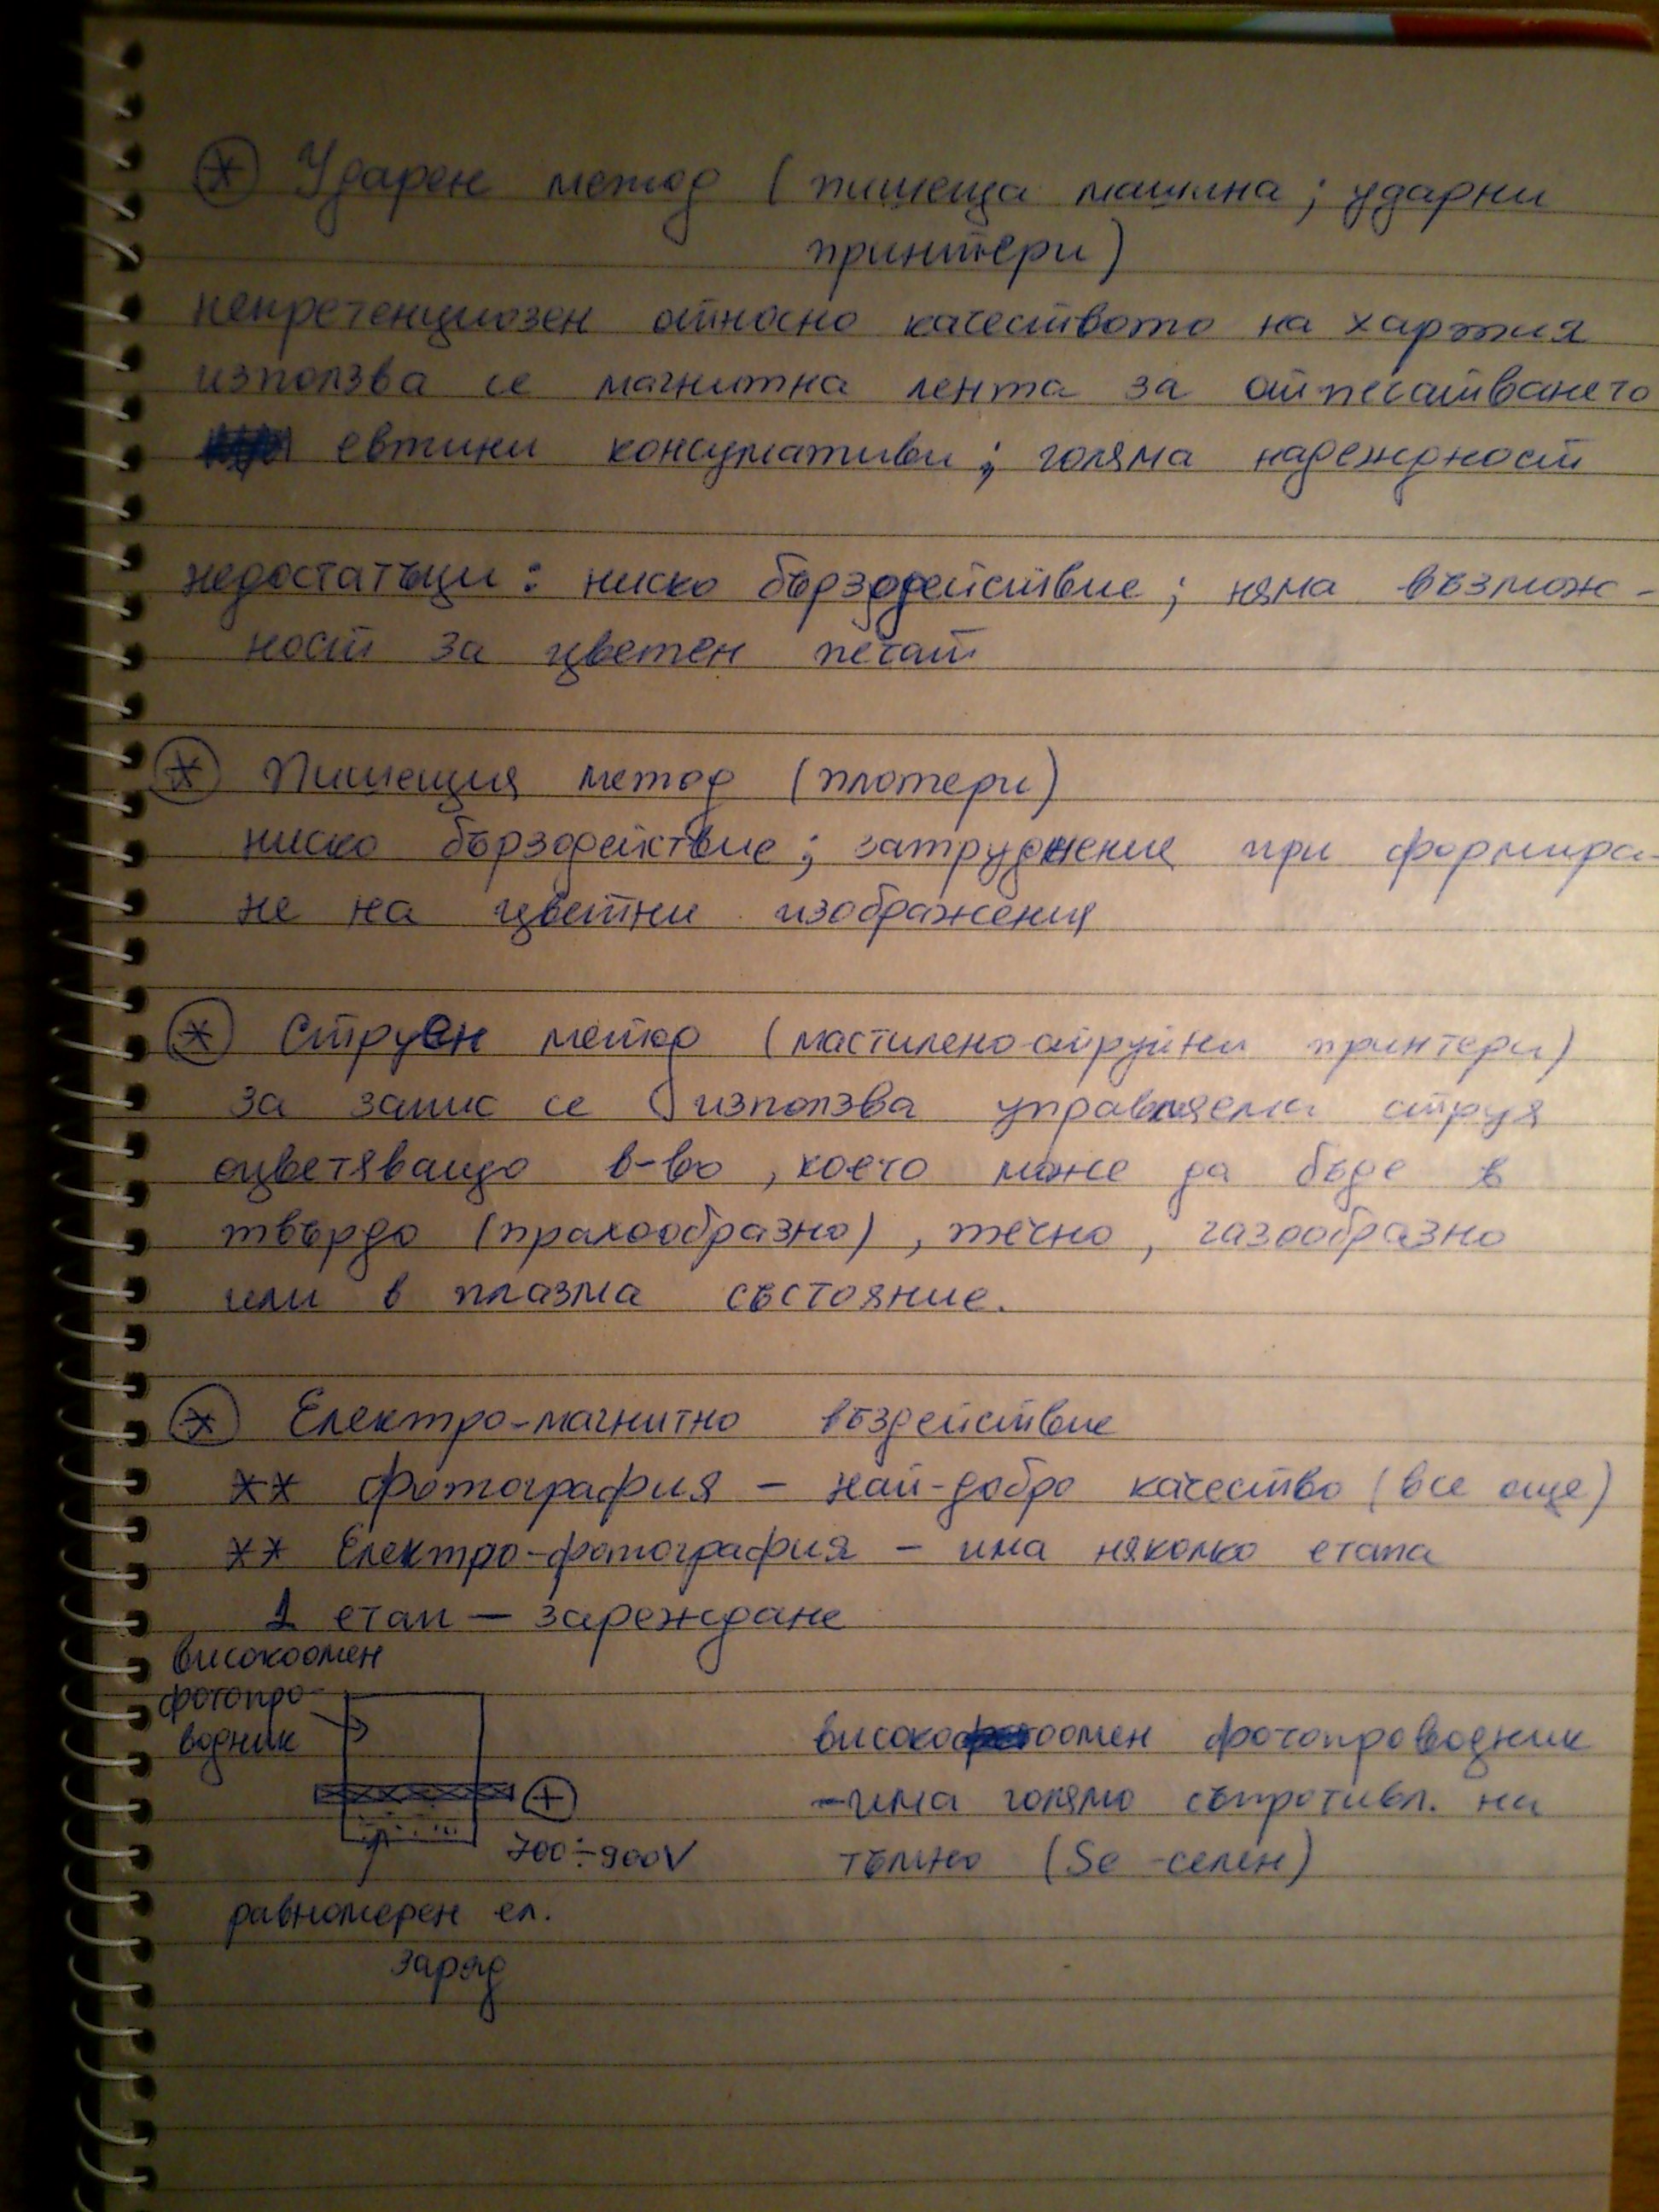 * Ударен метод (пишеща машина; ударни
принтери)
непретенциозен относно качеството на хартия
използва се магнитна лента за отпечатването
евтини консумативи; голяма надеждност
недостатъци: ниско бързодействие; няма възмож-
ност за цветен печат
* Пишещия метод (плотери)
ниско бързодействие; затруднение при формира-
не на цветни изображения
* Струен метод (мастилено-струйни принтери)
за запис се използва управляема струя
оцветяващо в-во, което може да бъде в
твърдо (прахообразно), течно, газообразно
или в плазма състояние.
* Електро-магнитно въздействие
** Фотография - най-добро качество (все още)
** Електро-фотография - има няколко етапа
1 етап - зареждане
високоомен
фотопро-
водник
+
700÷900V
равномерен ел.
заряд
високоомен фотопроводник
- има голямо съпротивл. на
тъмно (Se - селен)